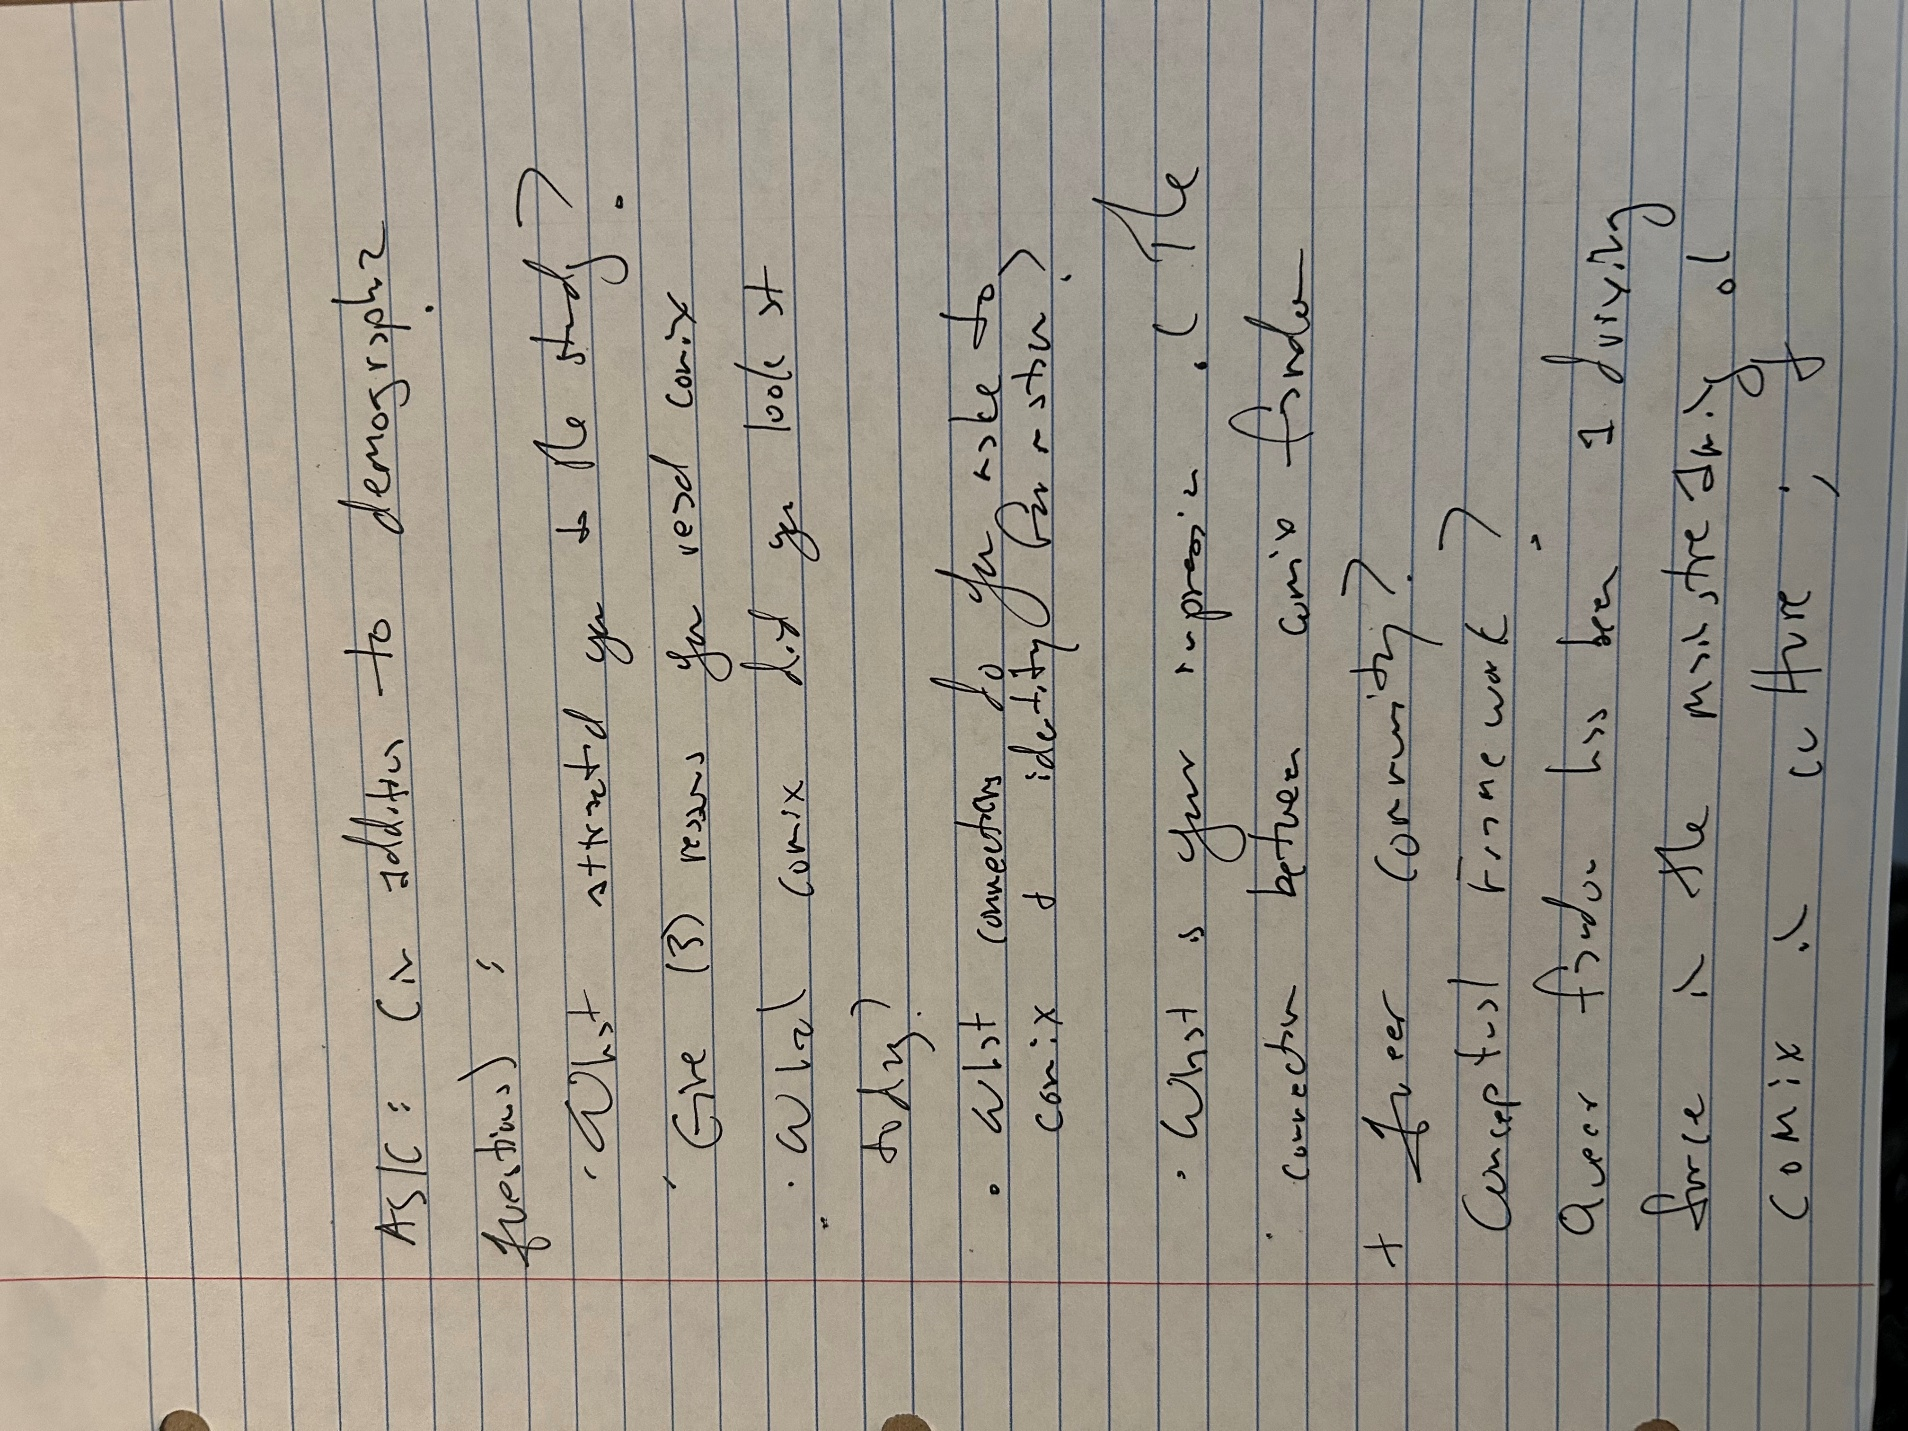 ASK: (in addition to demographic
questions) :
· What attracted you to the study?
· Give (3) reasons you read comix
· What comix did you look at
today?
· What connections do you make to
comix & identity formation?
· What is your impression . ( The
connection between comix fandom
+ queer community?
Conceptual Framework?
Queer fandom has been a driving
force in the mainstreaming of
comix in culture ;